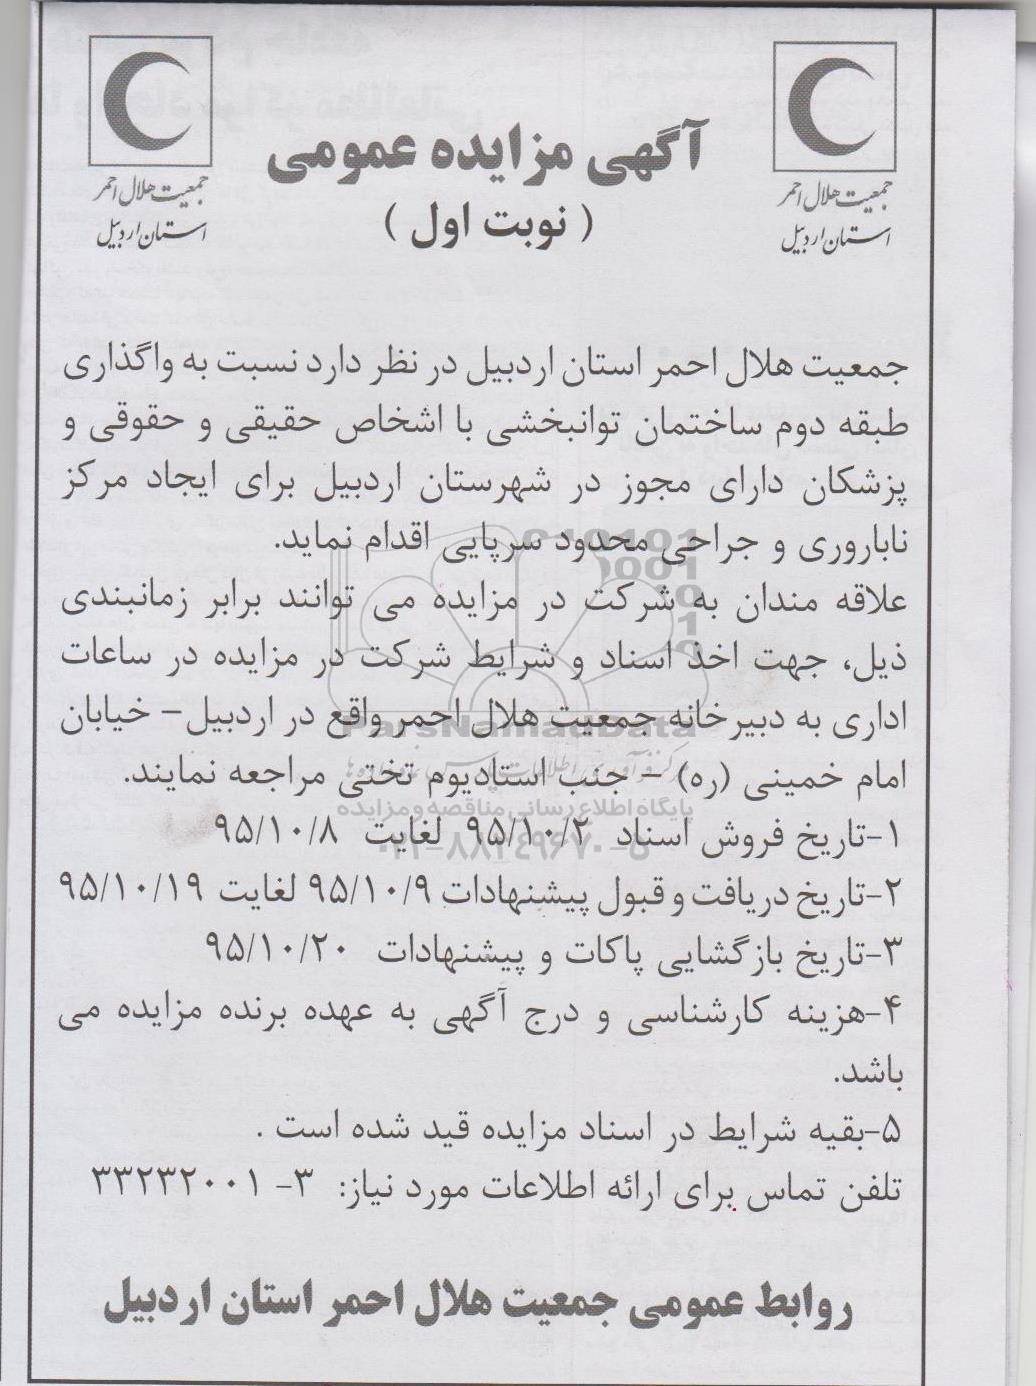 جمعیت هلال احمر
استان اردبیل
جمعیت هلال احمر
استان اردبیل
آگهی مزایده عمومی
( نوبت اول )
جمعیت هلال احمر استان اردبیل در نظر دارد نسبت به واگذاری
طبقه دوم ساختمان توانبخشی با اشخاص حقیقی و حقوقی و
پزشکان دارای مجوز در شهرستان اردبیل برای ایجاد مرکز
ناباروری و جراحی محدود سرپایی اقدام نماید.
علاقه مندان به شرکت در مزایده می توانند برابر زمانبندی
ذیل، جهت اخذ اسناد و شرایط شرکت در مزایده در ساعات
اداری به دبیرخانه جمعیت هلال احمر واقع در اردبیل – خیابان
ParsNamadData
امام خمینی (ره) – جنب استادیوم تختی مراجعه نمایند.
پایگاه اطلاع رسانی مناقصه و مزایده
۱-تاریخ فروش اسناد ۹۵/۱۰/۲ لغایت ۹۵/۱۰/۸
۲-تاریخ دریافت و قبول پیشنهادات ۹۵/۱۰/۹ لغایت ۹۵/۱۰/۱۹
۳-تاریخ بازگشایی پاکات و پیشنهادات ۹۵/۱۰/۲۰
۴-هزینه کارشناسی و درج آگهی به عهده برنده مزایده می
باشد.
۵-بقیه شرایط در اسناد مزایده قید شده است .
تلفن تماس برای ارائه اطلاعات مورد نیاز: ۳- ۳۳۲۳۲۰۰۱
روابط عمومی جمعیت هلال احمر استان اردبیل